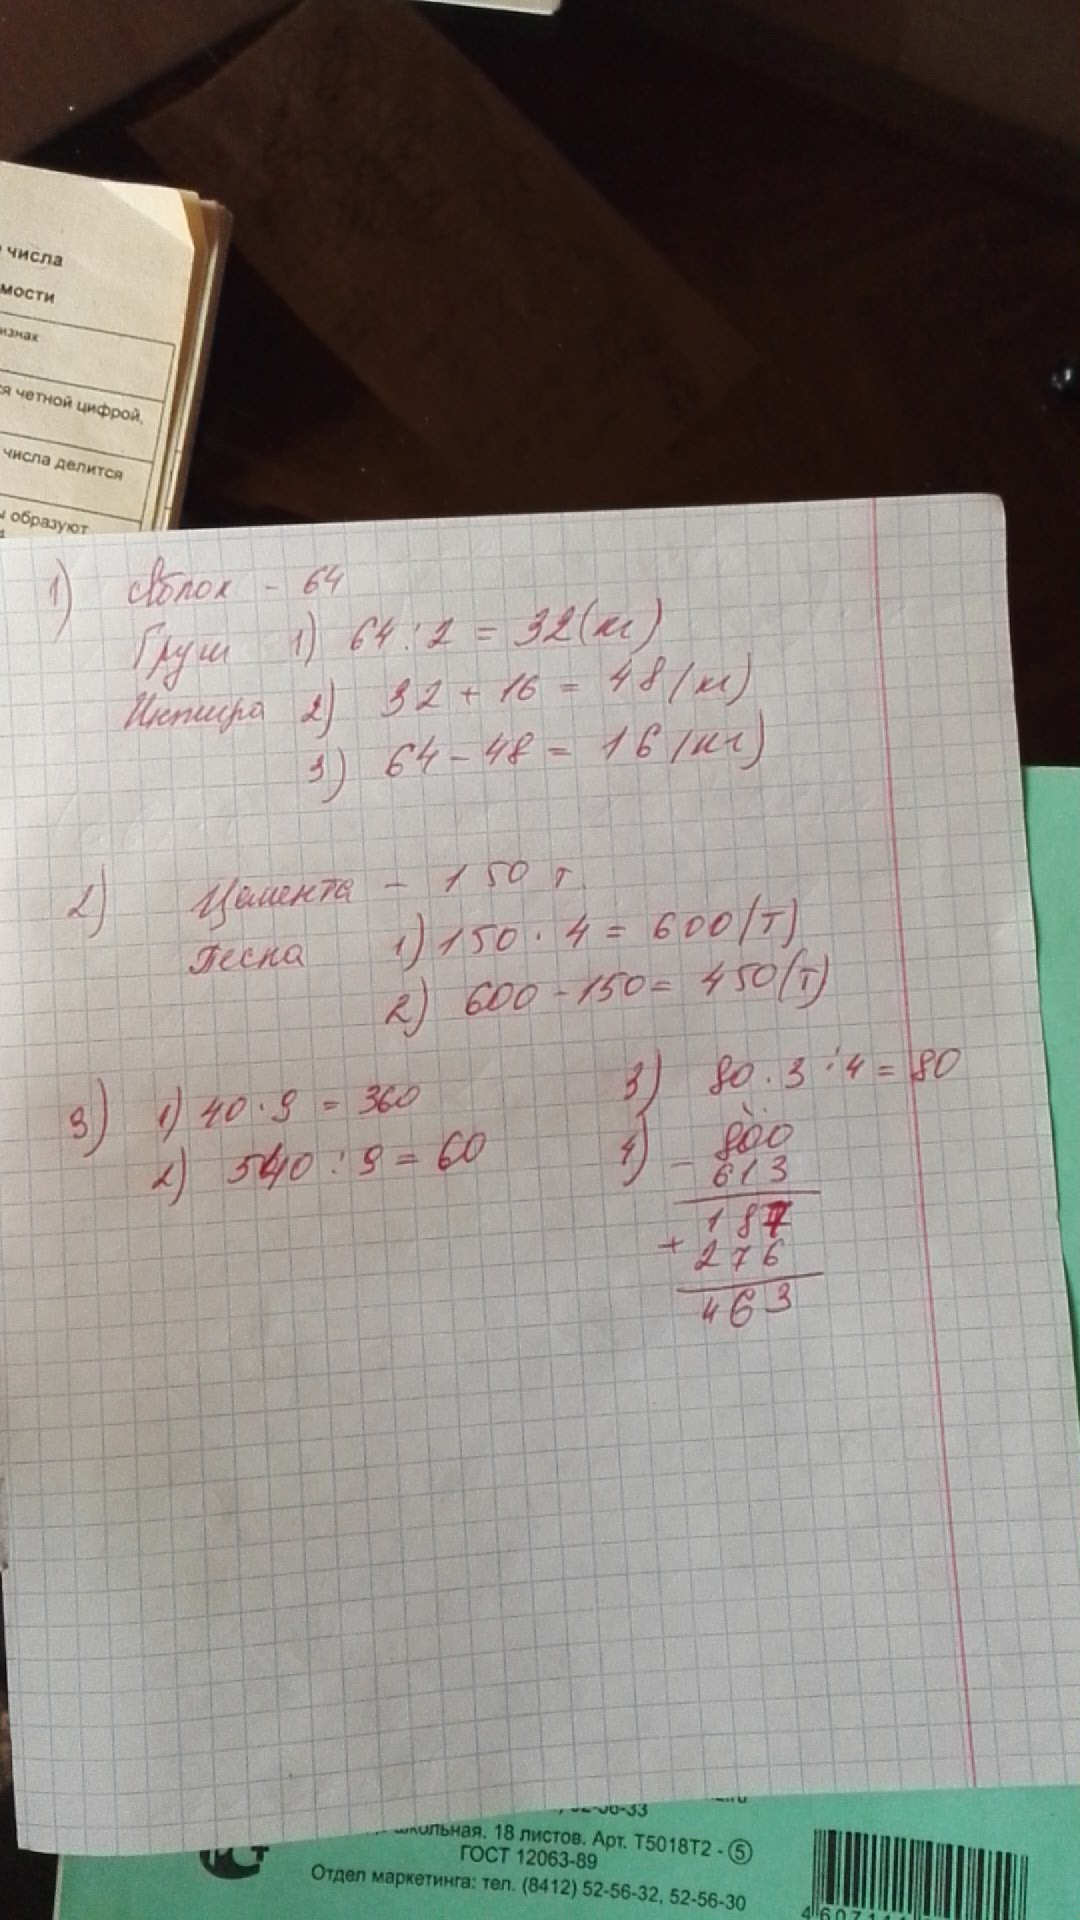 числа
мости
изнак
ся четной цифрой,
числа делится
ы образуют
1) Яблок - 64
Груш 1) 64 : 2 = 32 (кг)
Инжира 2) 32 + 16 = 48 (кг)
3) 64 - 48 = 16 (кг)
2) Цемента - 150 т
Песка 1) 150 · 4 = 600 (т)
2) 600 - 150 = 450 (т)
3) 1) 40 · 9 = 360
2) 540 : 9 = 60
3) 80 · 3 : 4 = 80
4) - 800
613
187
+ 276
463
52-56-33
школьная. 18 листов. Арт. Т5018Т2 - 5
ГОСТ 12063-89
Отдел маркетинга: тел. (8412) 52-56-32, 52-56-30